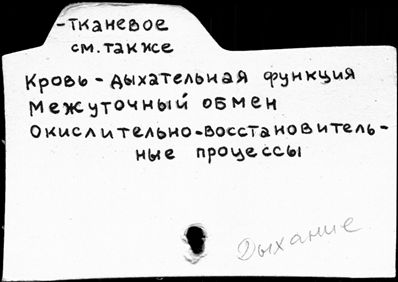 -тканевое
см. также
Кровь - дыхательная функция
Межуточный обмен
Окислительно-восстановитель-
ные процессы
Дыхание